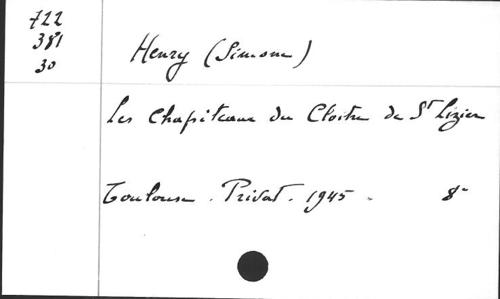 722
381
30
Henry (Simone)
Les Chapiteaux du Cloître de St Lizier
Toulouse. Privat. 1945. 8°